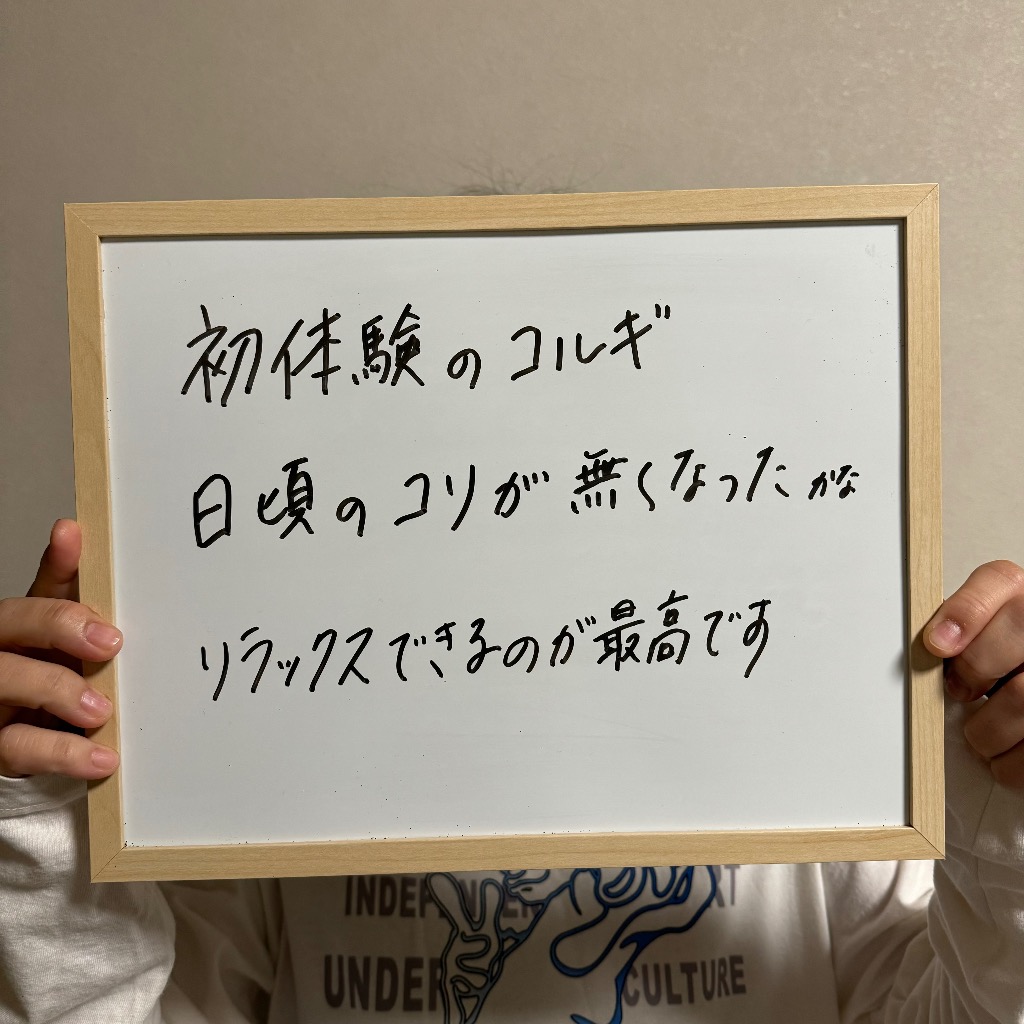 初体験のコルギ
日頃のコリが無くなったかな
リラックスできるのが最高です
UNDER
CULTURE